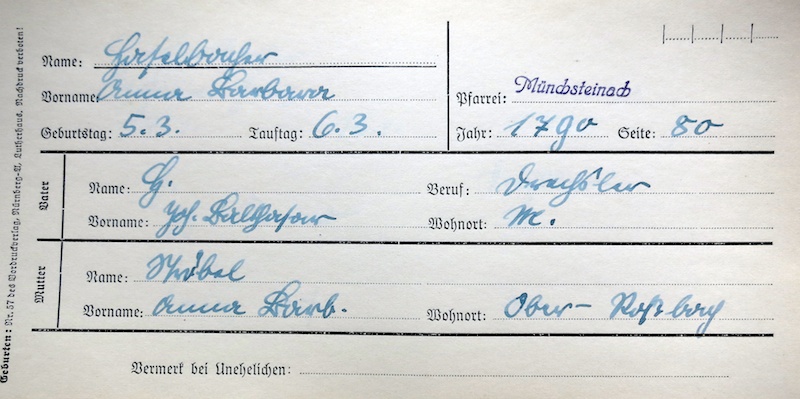 Name: Haselbacher
Vorname: Anna Barbara
Pfarrei: Münchsteinach
Geburtstag: 5.3. Tauftag: 6.3.
Jahr: 1790 Seite: 80
Vater
Name: H. Beruf: Drechsler
Vorname: Joh. Balthasar Wohnort: M.
Mutter
Name: Ströbel
Vorname: Anna Barb. Wohnort: Ober-Roßbach
Vermerk bei Unehelichen:
Geburten: Nr. 57 des Vordruckverlag, Nürnberg-A, Lutherhaus. Nachdruck verboten!